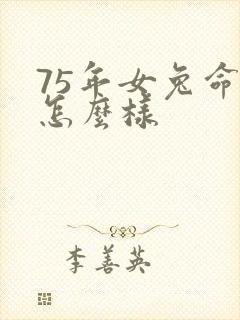 75年女兔命
怎麼樣
李善英